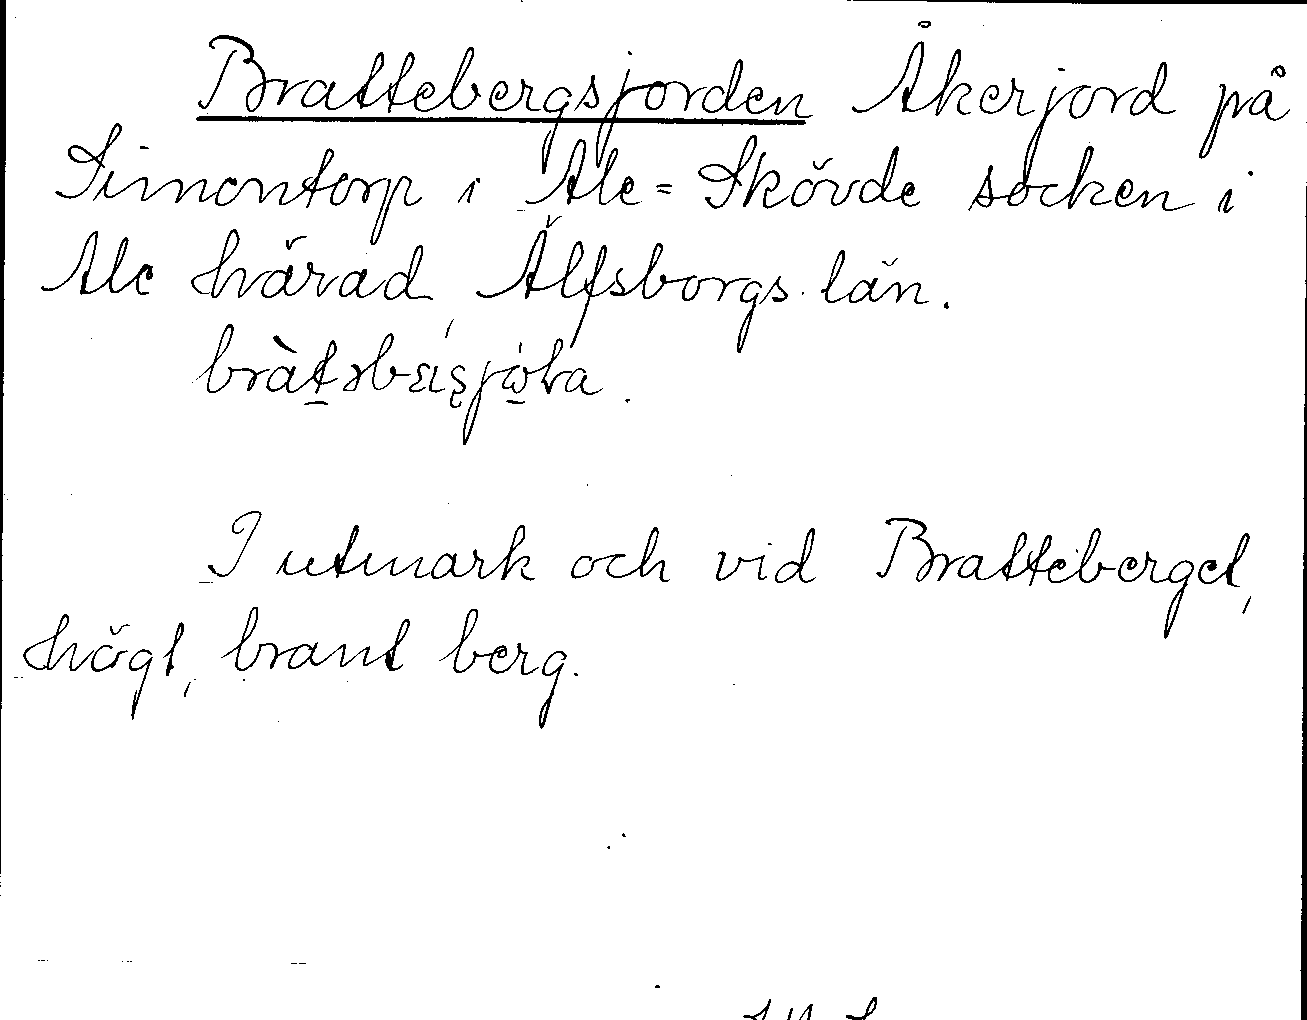 Brattebergsjorden Åkerjord på
Simontorp i Ale-Skövde socken i
Ale härad, Älfsborgs län.
I utmark och vid Bratteberget,
högt, brant berg.